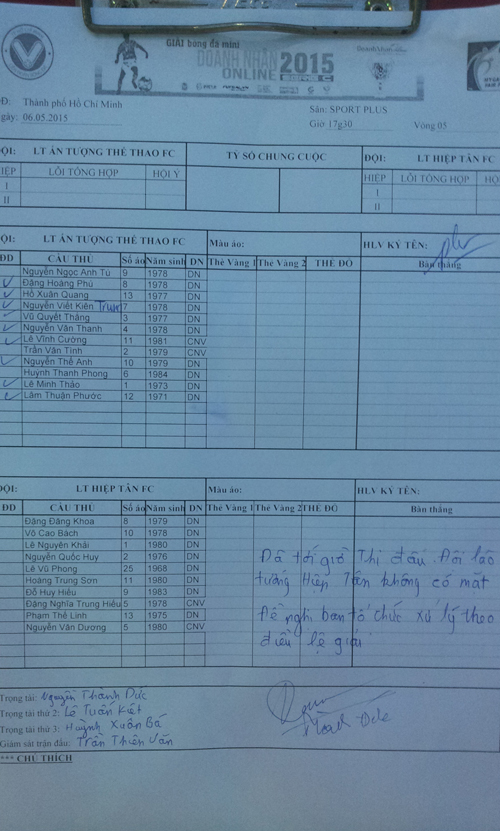 GIẢI bóng đá mini
DOANH NHÂN 2015
ONLINE
Đ: Thành phố Hồ Chí Minh
gày: 06.05.2015
Sân: SPORT PLUS
Giờ 17g30 Vòng 05
ỘI: LT ẤN TƯỢNG THỂ THAO FC TỶ SỐ CHUNG CUỘC ĐỘI: LT HIỆP TÂN FC
IỆP LỖI TỔNG HỢP HỘI Ý HIỆP LỖI TỔNG HỢP HỘ
I I
II II
ỘI: LT ẤN TƯỢNG THỂ THAO FC Màu áo: HLV KÝ TÊN:
ĐD CẦU THỦ Số áo Năm sinh DN Thẻ Vàng 1 Thẻ Vàng 2 THẺ ĐỎ Bàn thắng
Nguyễn Ngọc Anh Tú 9 1978 DN
Đặng Hoàng Phú 8 1978 DN
Hồ Xuân Quang 13 1977 DN
Nguyễn Viết Kiên Trung 7 1978 DN
Vũ Quyết Thắng 3 1977 DN
Nguyễn Văn Thanh 4 1978 DN
Lê Vĩnh Cường 11 1981 CNV
Trần Văn Tính 2 1979 CNV
Nguyễn Thế Anh 10 1979 DN
Huỳnh Thanh Phong 6 1984 DN
Lê Minh Thảo 1 1973 DN
Lâm Thuận Phước 12 1971 DN
ĐỘI: LT HIỆP TÂN FC Màu áo: HLV KÝ TÊN:
ĐD CẦU THỦ Số áo Năm sinh DN Thẻ Vàng 1 Thẻ Vàng 2 THẺ ĐỎ Bàn thắng
Đặng Đăng Khoa 8 1979 DN
Võ Cao Bách 10 1978 DN
Lê Nguyên Khải 1 1980 DN
Nguyễn Quốc Huy 2 1976 DN
Lê Vũ Phong 25 1968 DN
Hoàng Trung Sơn 11 1980 DN
Đỗ Huy Hiếu 9 1983 DN
Đặng Nghĩa Trung Hiếu 5 1978 CNV
Phạm Thế Linh 13 1975 DN
Nguyễn Văn Dương 5 1980 CNV
Đã tới giờ thi đấu. Đội lão
tướng Hiệp Tân không có mặt
Đề nghị ban tổ chức xử lý theo
điều lệ giải
Trọng tài: Nguyễn Thành Đức
Trọng tài thứ 2: Lê Tuấn Kiệt
Trọng tài thứ 3: Huỳnh Xuân Bá
Giám sát trận đấu: Trần Thiên Văn
*** CHÚ THÍCH